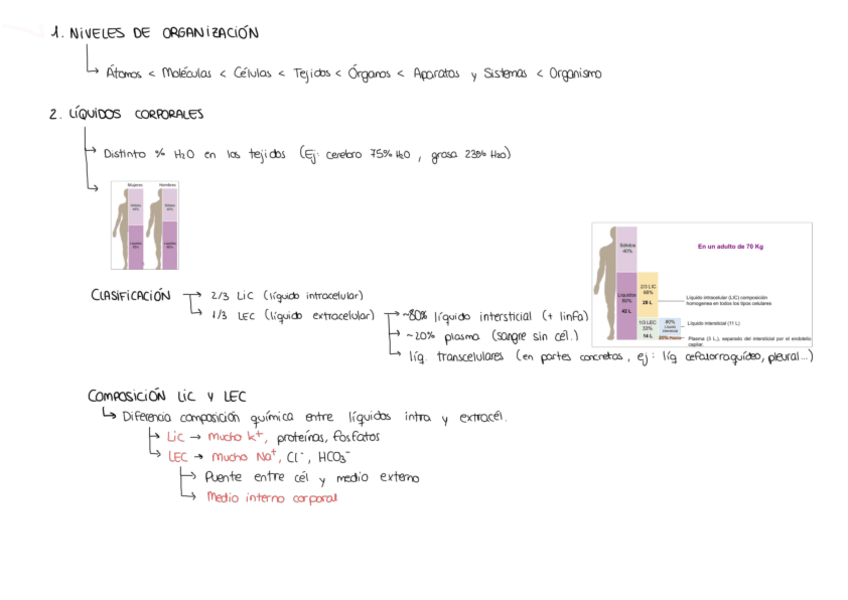 1. NIVELES DE ORGANIZACIÓN
Átomos < Moléculas < Células < Tejidos < Órganos < Aparatos y Sistemas < Organismo
2. LÍQUIDOS CORPORALES
Distinto % H₂O en los tejidos (Ej: cerebro 75% H₂O, grasa 23% H₂O)
Mujeres Hombres
En un adulto de 70 Kg
Sólidos
40%
Líquidos
60%
42 L
2/3 LIC
28 L
Líquido intracelular (LIC) composición
homogenea en todos los tipos celulares
1/3 LEC
33%
14 L
80%
Líquido intersticial (11 L)
Plasma (3 L), separado del intersticial por el endotelio
capilar.
CLASIFICACIÓN → 2/3 LIC (líquido intracelular)
1/3 LEC (líquido extracelular) → ~80% líquido intersticial (+ linfa)
~20% plasma (sangre sin cél.)
líq. transcelulares (en partes concretas, ej: líq cefalorraquídeo, pleural...)
COMPOSICIÓN LIC Y LEC
Diferencia composición química entre líquidos intra y extracél.
LIC → mucho K⁺, proteínas, fosfatos
LEC → mucho Na⁺, Cl⁻, HCO₃⁻
Puente entre cél y medio externo
Medio interno corporal